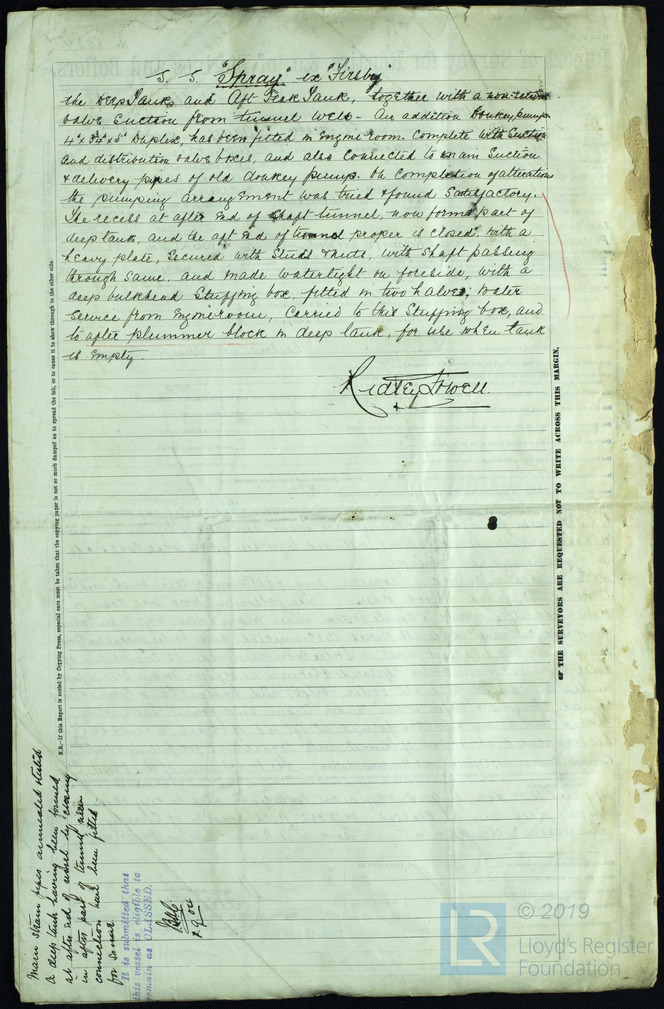 S. S. "Spray" ex "Firsby"
the Deep Tank and Aft Peak Tank, together with a non-return
valve suction from tunnel well - An addition Donkey pump
4" x 3¾" x 5" Duplex, has been fitted in Engine room complete with suction
and distribution valve boxes, and also connected to main suction
& delivery pipes of old donkey pump. On completion of alteration
the pumping arrangement was tried & found satisfactory.
The recess at after end of shaft tunnel, now forms part of
deep tank, and the aft end of tunnel proper is closed with a
heavy plate, secured with studs & nuts, with shaft passing
through same, and made watertight on foreside, with a
deep bulkhead stuffing box, fitted in two halves, water
service from Engine room, carried to this stuffing box, and
to after plummer block in deep tank, for use when tank
is empty.
Ridley Towell
N.B.—If this Report is copied by Copying Press, especial care must be taken that the copying paper is not so much damped as to spread the ink, or to cause it to show through to the other side.
☞ THE SURVEYORS ARE REQUESTED NOT TO WRITE ACROSS THIS MARGIN.
Main steam pipes annealed & tested
A deep tank having been formed
at after end of vessel by closing
in after part of tunnel, new
connections have been fitted
for same
It is submitted that
this vessel is eligible to
remain as CLASSED.
7.9.04
LR
© 2019
Lloyd's Register
Foundation